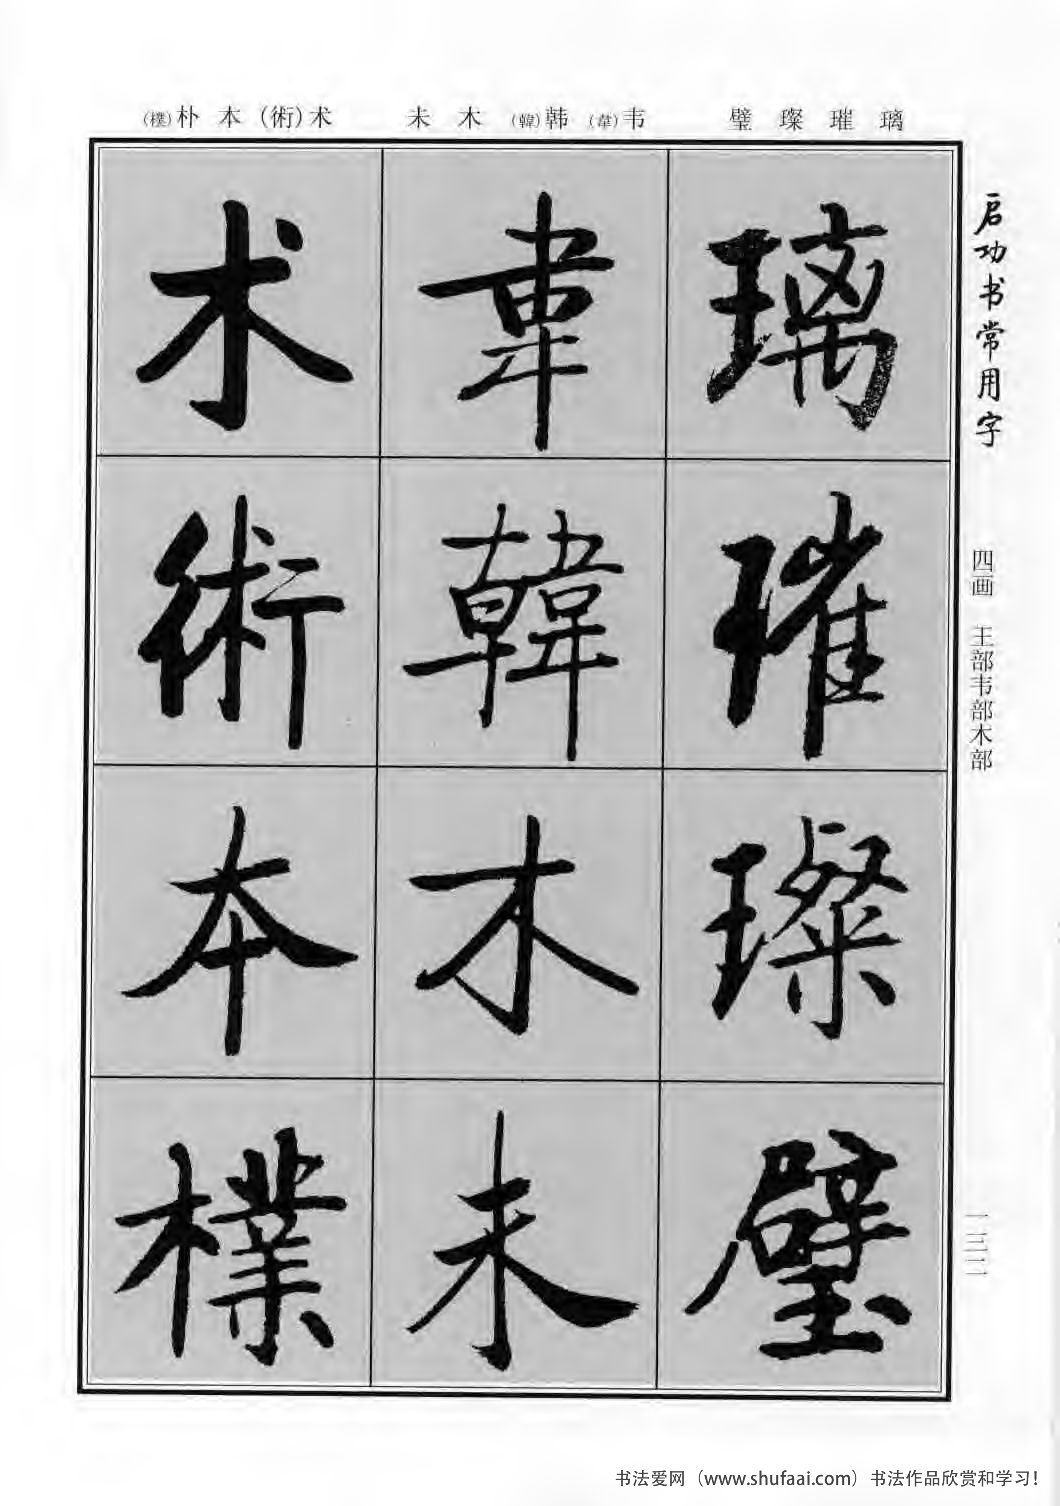 璃 璀 璨 璧
韦(韋) 韩(韓) 木 未
术(術) 本 朴(樸)
璃
璀
璨
璧
韋
韓
木
未
术
術
本
樸
启功书常用字
四画 王部韦部木部
一三二
书法爱网（www.shufaai.com）书法作品欣赏和学习！